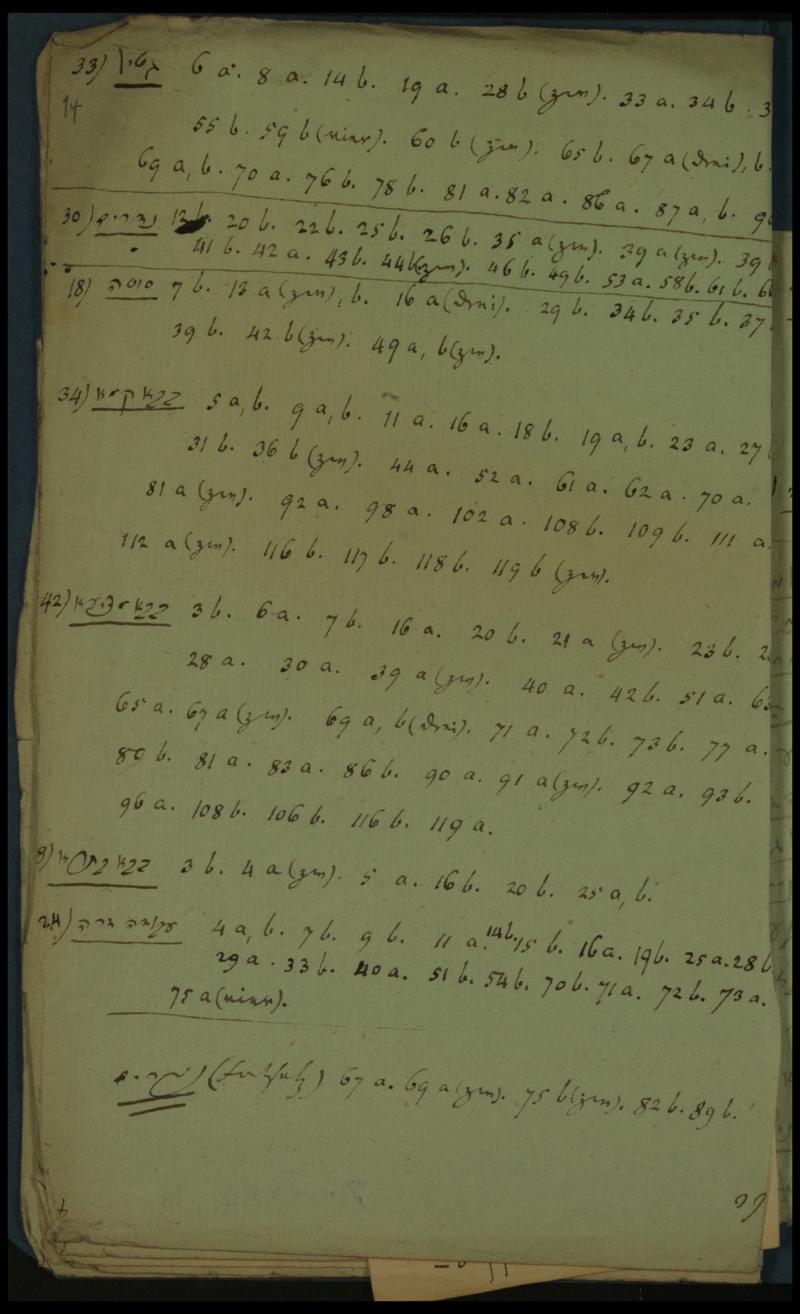 33) גטין 6 a. 8 a. 14 b. 19 a. 28 b (zm). 33 a. 34 b. 3
14
55 b. 59 b (vier). 60 b (zm). 65 b. 67 a (drei), b.
69 a, b. 70 a. 76 b. 78 b. 81 a. 82 a. 86 a. 87 a, b. 90
30) נדרים 12 b. 20 b. 22 b. 25 b. 26 b. 35 a (zm). 39 a (zm). 39
41 b. 42 a. 43 b. 44 b (zm). 46 b. 49 b. 53 a. 58 b. 61 b. 6
18) סוטה 7 b. 13 a (zm), b. 16 a (drei). 29 b. 34 b. 35 b. 37
39 b. 42 b (zm). 49 a, b (zm).
34) בבא קמא 5 a, b. 9 a, b. 11 a. 16 a. 18 b. 19 a, b. 23 a. 27
31 b. 36 b (zm). 44 a. 52 a. 61 a. 62 a. 70 a.
81 a (zm). 92 a. 98 a. 102 a. 108 b. 109 b. 111 a.
112 a (zm). 116 b. 117 b. 118 b. 119 b (zm).
42) בבא מציעא 3 b. 6 a. 7 b. 16 a. 20 b. 21 a (zm). 23 b. 2
28 a. 30 a. 39 a (zm). 40 a. 42 b. 51 a. 63
65 a. 67 a (zm). 69 a, b (drei). 71 a. 72 b. 73 b. 77 a.
80 b. 81 a. 83 a. 86 b. 90 a. 91 a (zm). 92 a. 93 b.
96 a. 108 b. 106 b. 116 b. 119 a.
8) בבא בתרא 3 b. 4 a (zm). 5 a. 16 b. 20 b. 25 a, b.
24) עבודה זרה 4 a, b. 7 b. 9 b. 11 a. 14 b. 15 b. 16 a. 19 b. 25 a. 28 b
29 a. 33 b. 40 a. 51 b. 54 b. 70 b. 71 a. 72 b. 73 a.
75 a (vier).
נדרים 67 a. 69 a (zm). 75 b (zm). 82 b. 89 b.